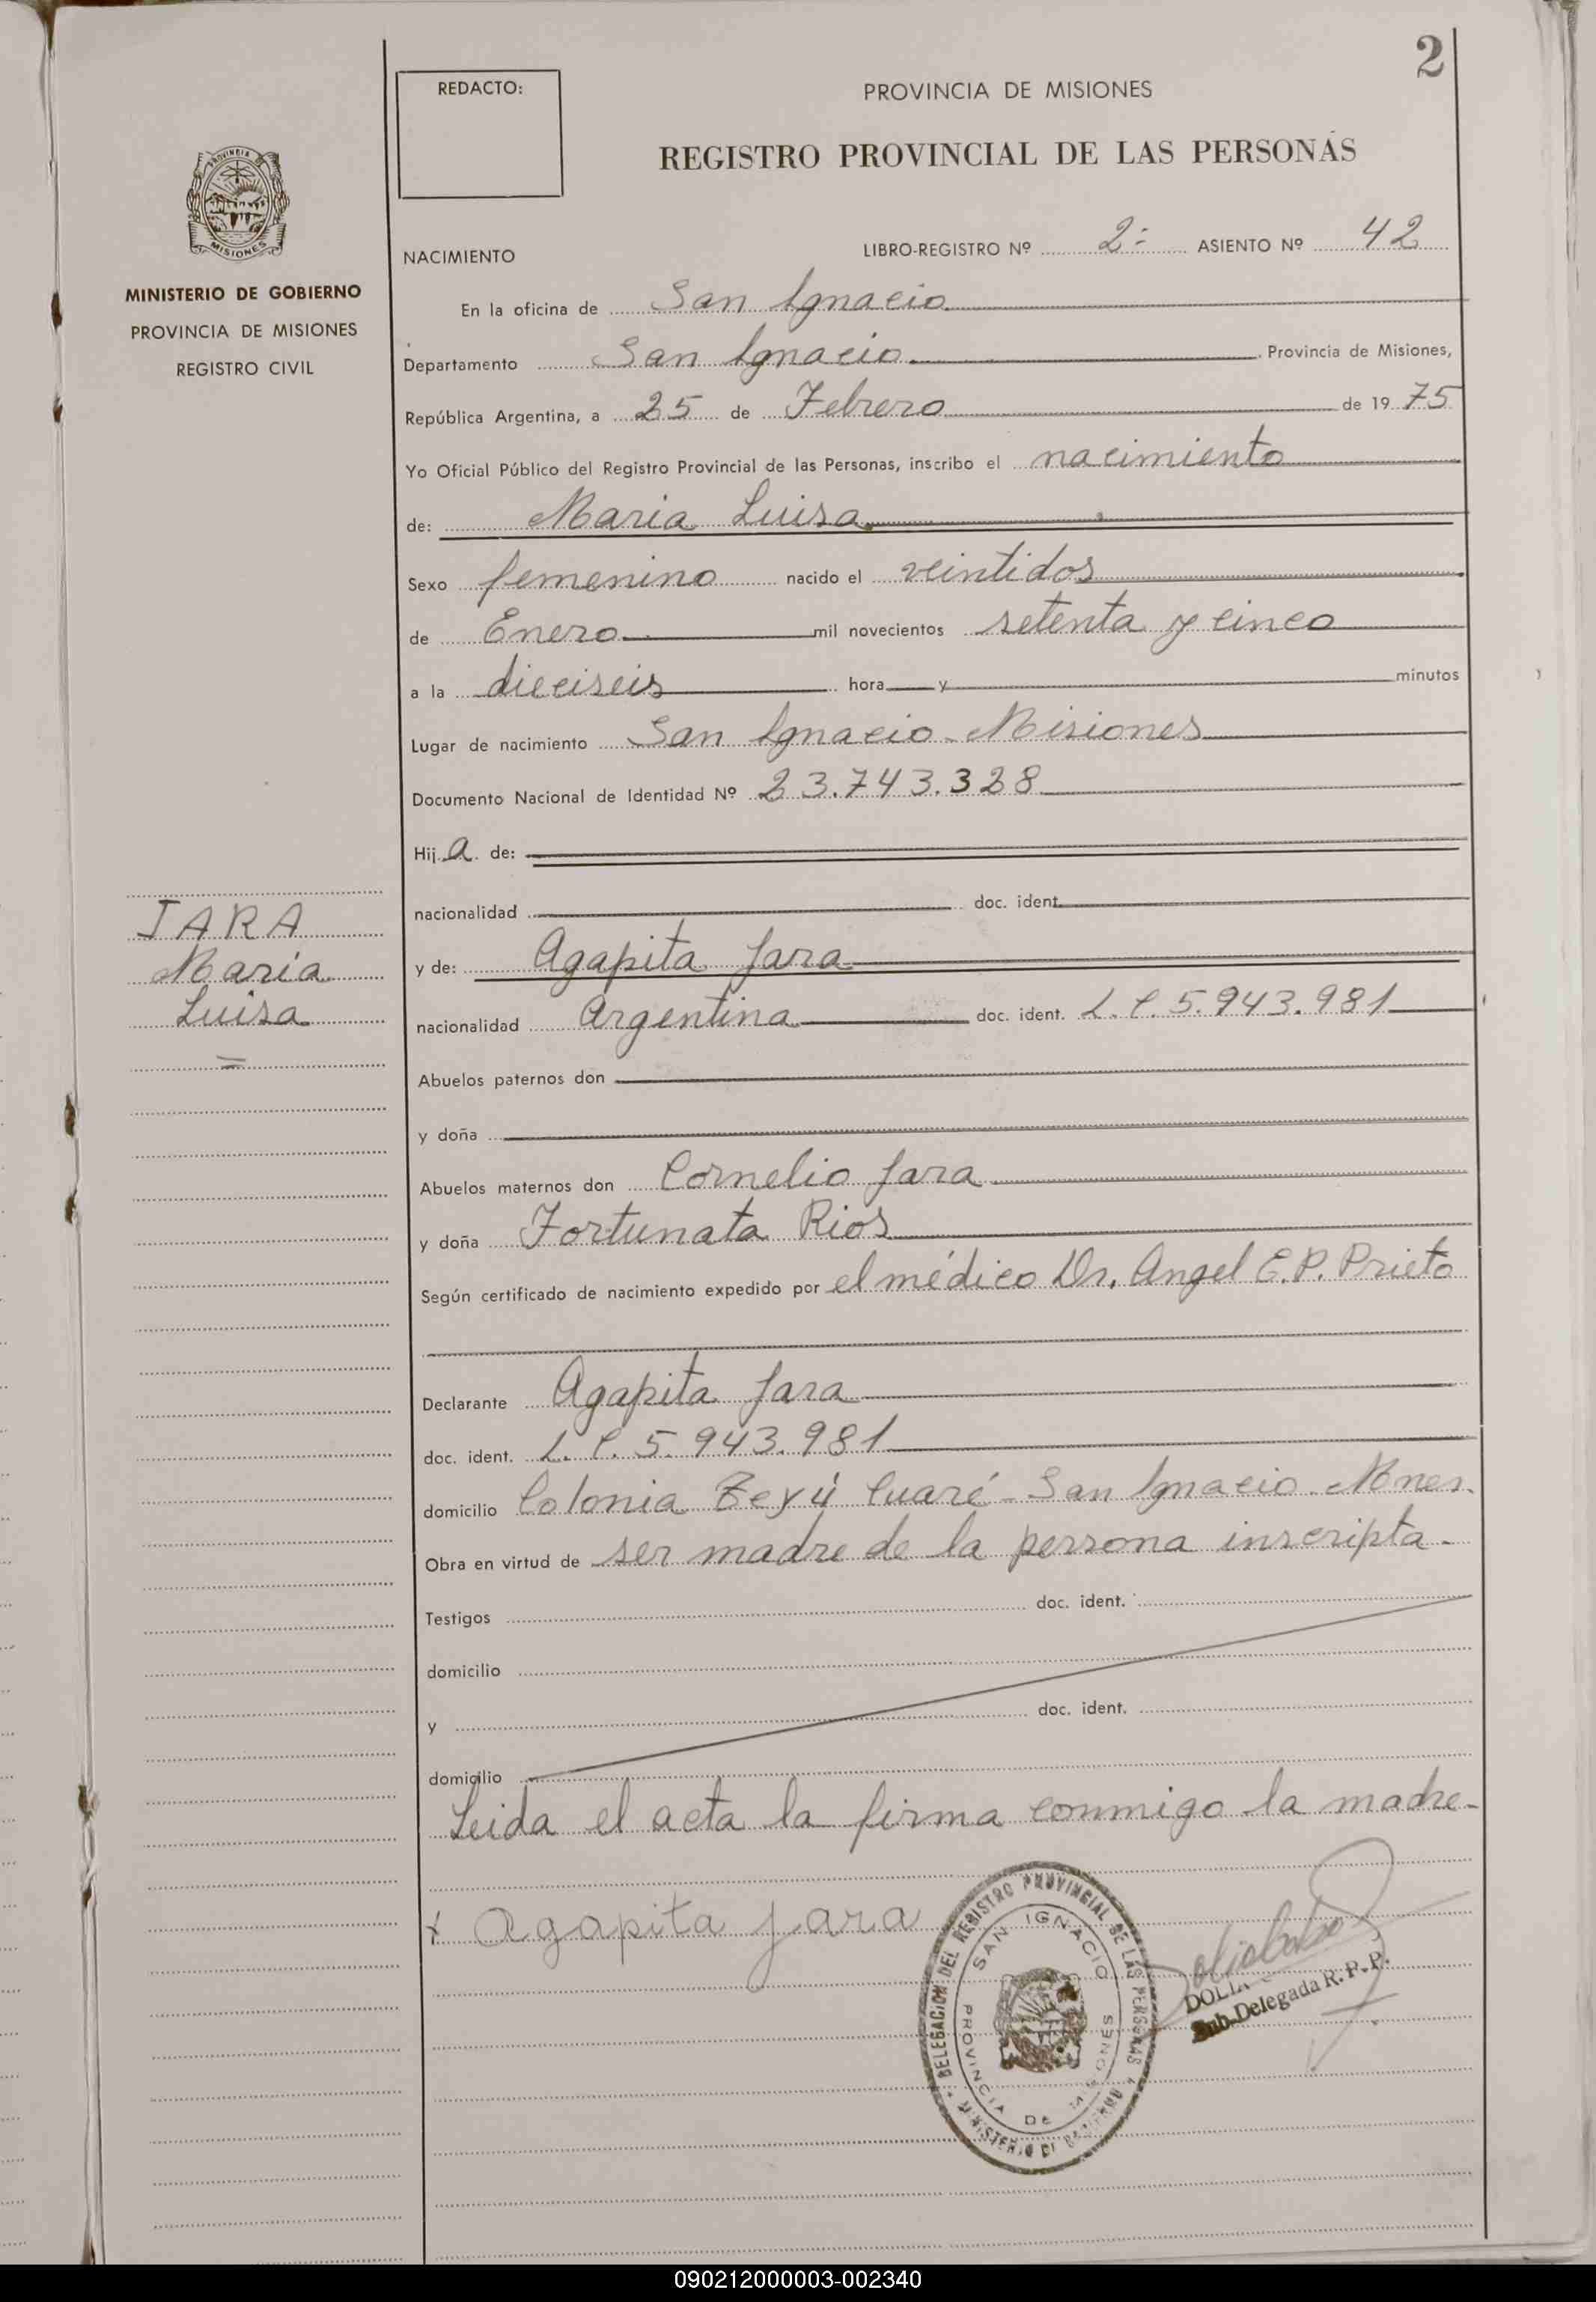 2
REDACTO:
PROVINCIA DE MISIONES
REGISTRO PROVINCIAL DE LAS PERSONAS
PROVINCIA DE
MISIONES
MINISTERIO DE GOBIERNO
PROVINCIA DE MISIONES
REGISTRO CIVIL
NACIMIENTO
LIBRO-REGISTRO Nº 2:- ASIENTO Nº 42
En la oficina de San Ignacio
Departamento San Ignacio. Provincia de Misiones,
República Argentina, a 25 de Febrero de 19 75
Yo Oficial Público del Registro Provincial de las Personas, inscribo el nacimiento
de: Maria Luisa
Sexo femenino nacido el veintidos
de Enero mil novecientos setenta y cinco
a la dieciseis hora y minutos
Lugar de nacimiento San Ignacio - Misiones
Documento Nacional de Identidad Nº 23.743.328
Hij a de:
nacionalidad doc. ident.
JARA
Maria
Luisa
=
y de: Agapita Jara
nacionalidad Argentina doc. ident. L.C. 5.943.981
Abuelos paternos don
y doña
Abuelos maternos don Cornelio Jara
y doña Fortunata Rios
Según certificado de nacimiento expedido por el médico Dr. Angel E.P. Prieto
Declarante Agapita Jara
doc. ident. L.C. 5.943.981
domicilio Colonia Teyú Cuaré - San Ignacio - Mnes.
Obra en virtud de ser madre de la persona inscripta -
Testigos doc. ident.
domicilio
y doc. ident.
domicilio
Leida el acta la firma conmigo la madre -
x Agapita Jara
DELEGACION DEL REGISTRO PROVINCIAL DE LAS PERSONAS
SAN IGNACIO
PROVINCIA DE MISIONES
MINISTERIO DE GOBIERNO
Sub-Delegada R. P. P.
090212000003-002340